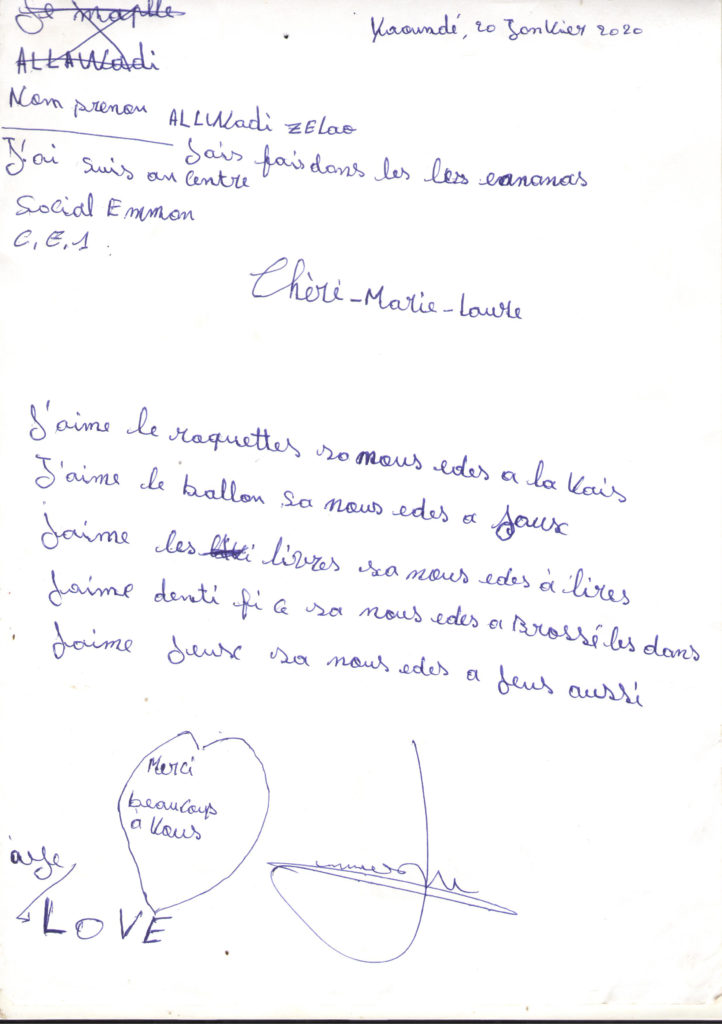 Je maplle
Kaoundé, 20 Jonkier 2020
ALLAWadi
Nom prenon ALLWadi ZElao
J'ai suis au centre
Jais fais dans les les cananas
Social Emmon
C.E.1
Chèri-Marie-Laure
J'aime le raquettes sa nous edes a la Kais
J'aime le ballon sa nous edes a Jaux
Jaime les livres sa nous edes à lires
Jaime denti fi ce sa nous edes a Brossé les dans
Jaime Jeux sa nous edes a Jeus aussi
Merci
beaucoups
à Kous
LOVE